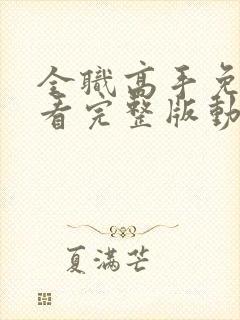 全職高手免
看完整版動
夏滿芒